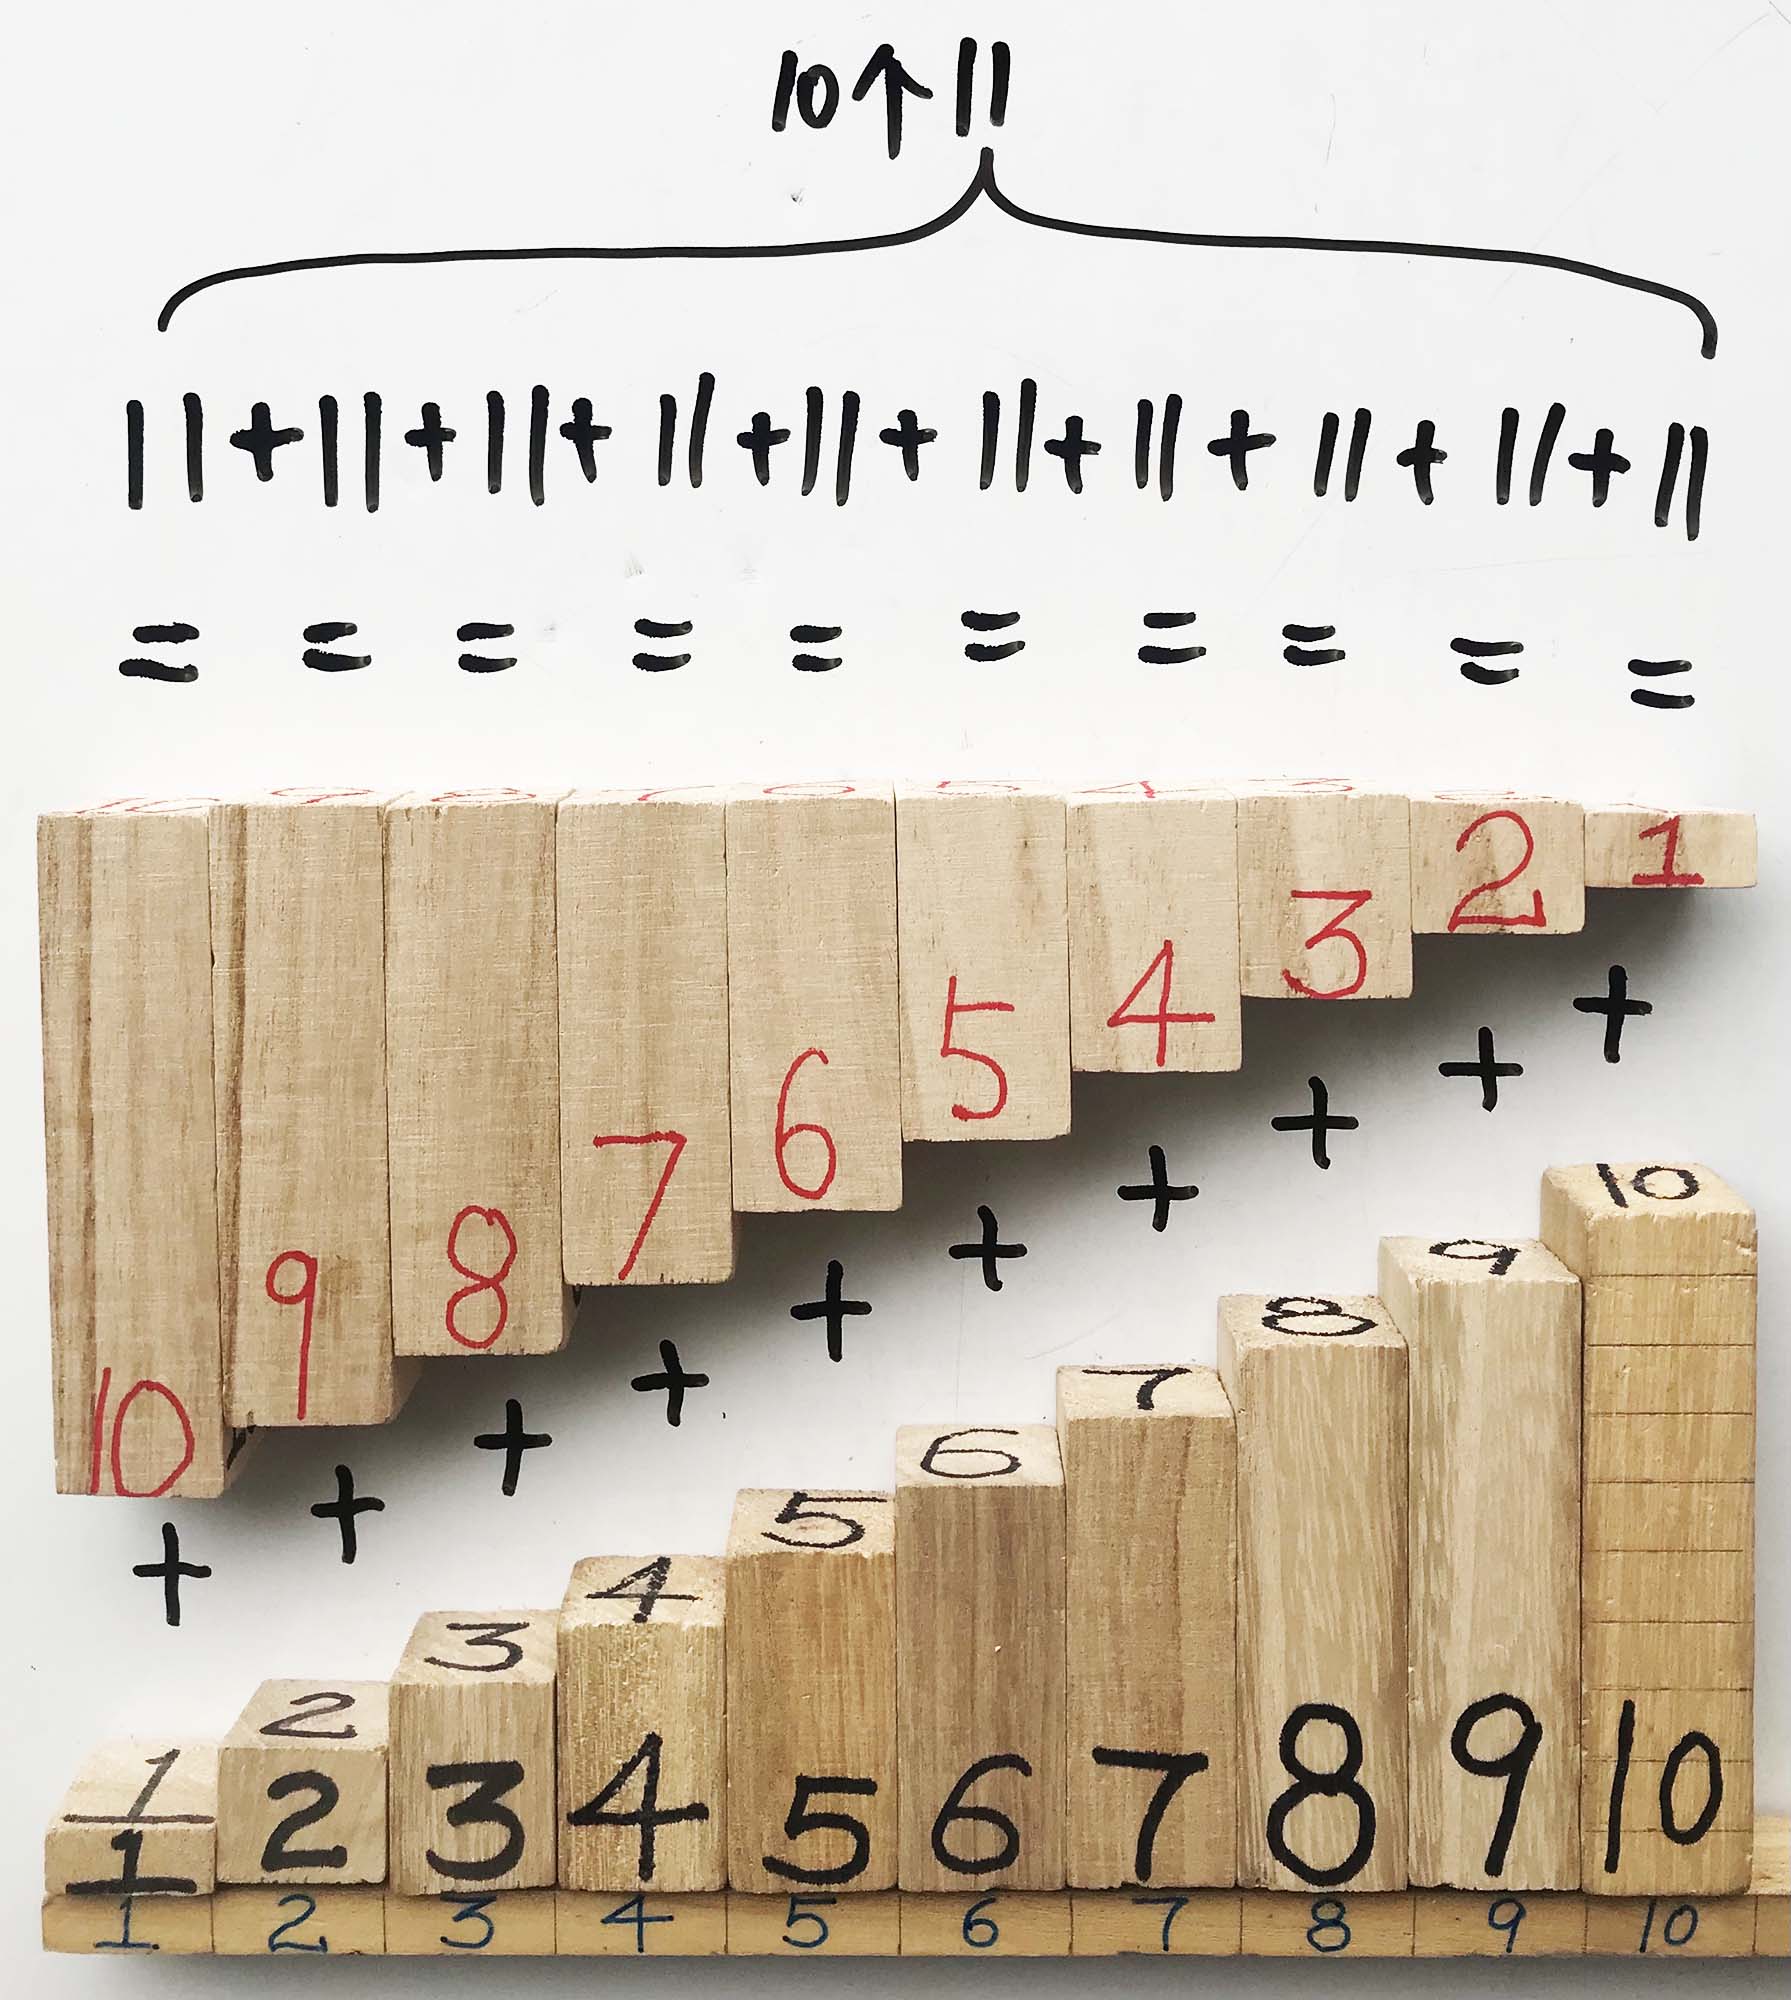 10↑11
11+11+11+11+11+11+11+11+11+11
= = = = = = = = = =
10 9 8 7 6 5 4 3
10 9 8 7 6 5 4 3 2 1
+ + + + + + + + + +
1 2 3 4 5 6 7 8 9 10
1 2 3 4 5 6 7 8 9 10
1 2 3 4 5 6 7 8 9 10